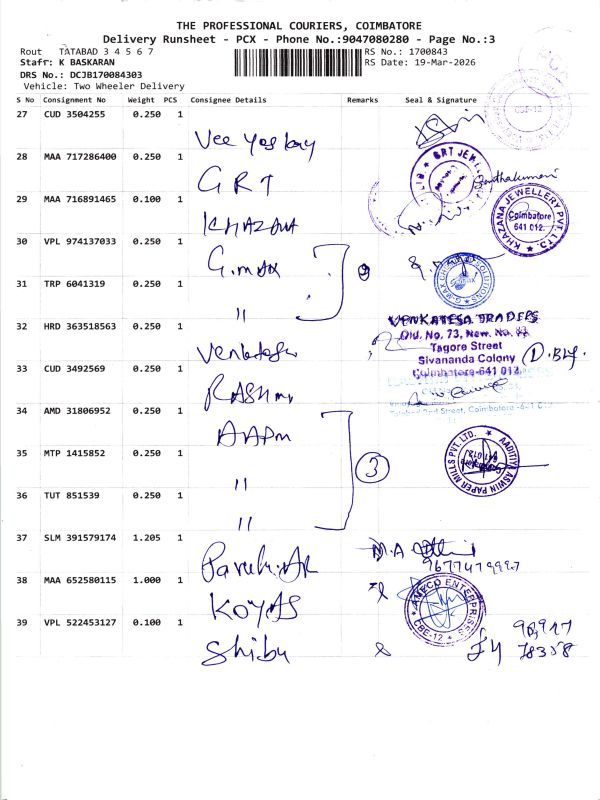 THE PROFESSIONAL COURIERS, COIMBATORE
Delivery Runsheet - PCX - Phone No.:9047080280 - Page No.:3
Rout TATABAD 3 4 5 6 7
RS No.: 1700843
Staff: K BASKARAN
RS Date: 19-Mar-2026
DRS No.: DCJB170084303
Vehicle: Two Wheeler Delivery
S No Consignment No Weight PCS Consignee Details Remarks Seal & Signature
27 CUD 3504255 0.250 1
CBE-12
28 MAA 717286400 0.250 1
GRT
29 MAA 716891465 0.100 1
KHAZANA
KHAZANA JEWELLERY PVT. LTD.
Coimbatore
641 012.
30 VPL 974137033 0.250 1
G.max
31 TRP 6041319 0.250 1
"
32 HRD 363518563 0.250 1
VENKATESA TRADERS
Old. No. 73, New. No.
Tagore Street
Sivananda Colony
Coimbatore-641 012
33 CUD 3492569 0.250 1
34 AMD 31806952 0.250 1
AAPM
2nd Street, Coimbatore
35 MTP 1415852 0.250 1
"
3
AADITIYA ASWIN PAPER MILLS PVT. LTD.
36 TUT 851539 0.250 1
"
37 SLM 391579174 1.205 1
M.A
38 MAA 652580115 1.000 1
KOYAS
ENTERPRISES
CBE-12
39 VPL 522453127 0.100 1
Shibu